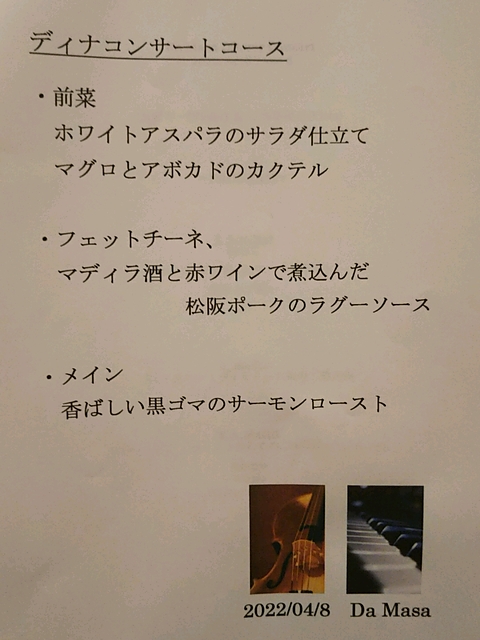 ディナコンサートコース
・前菜
ホワイトアスパラのサラダ仕立て
マグロとアボカドのカクテル
・フェットチーネ、
マディラ酒と赤ワインで煮込んだ
松阪ポークのラグーソース
・メイン
香ばしい黒ゴマのサーモンロースト
2022/04/8 Da Masa